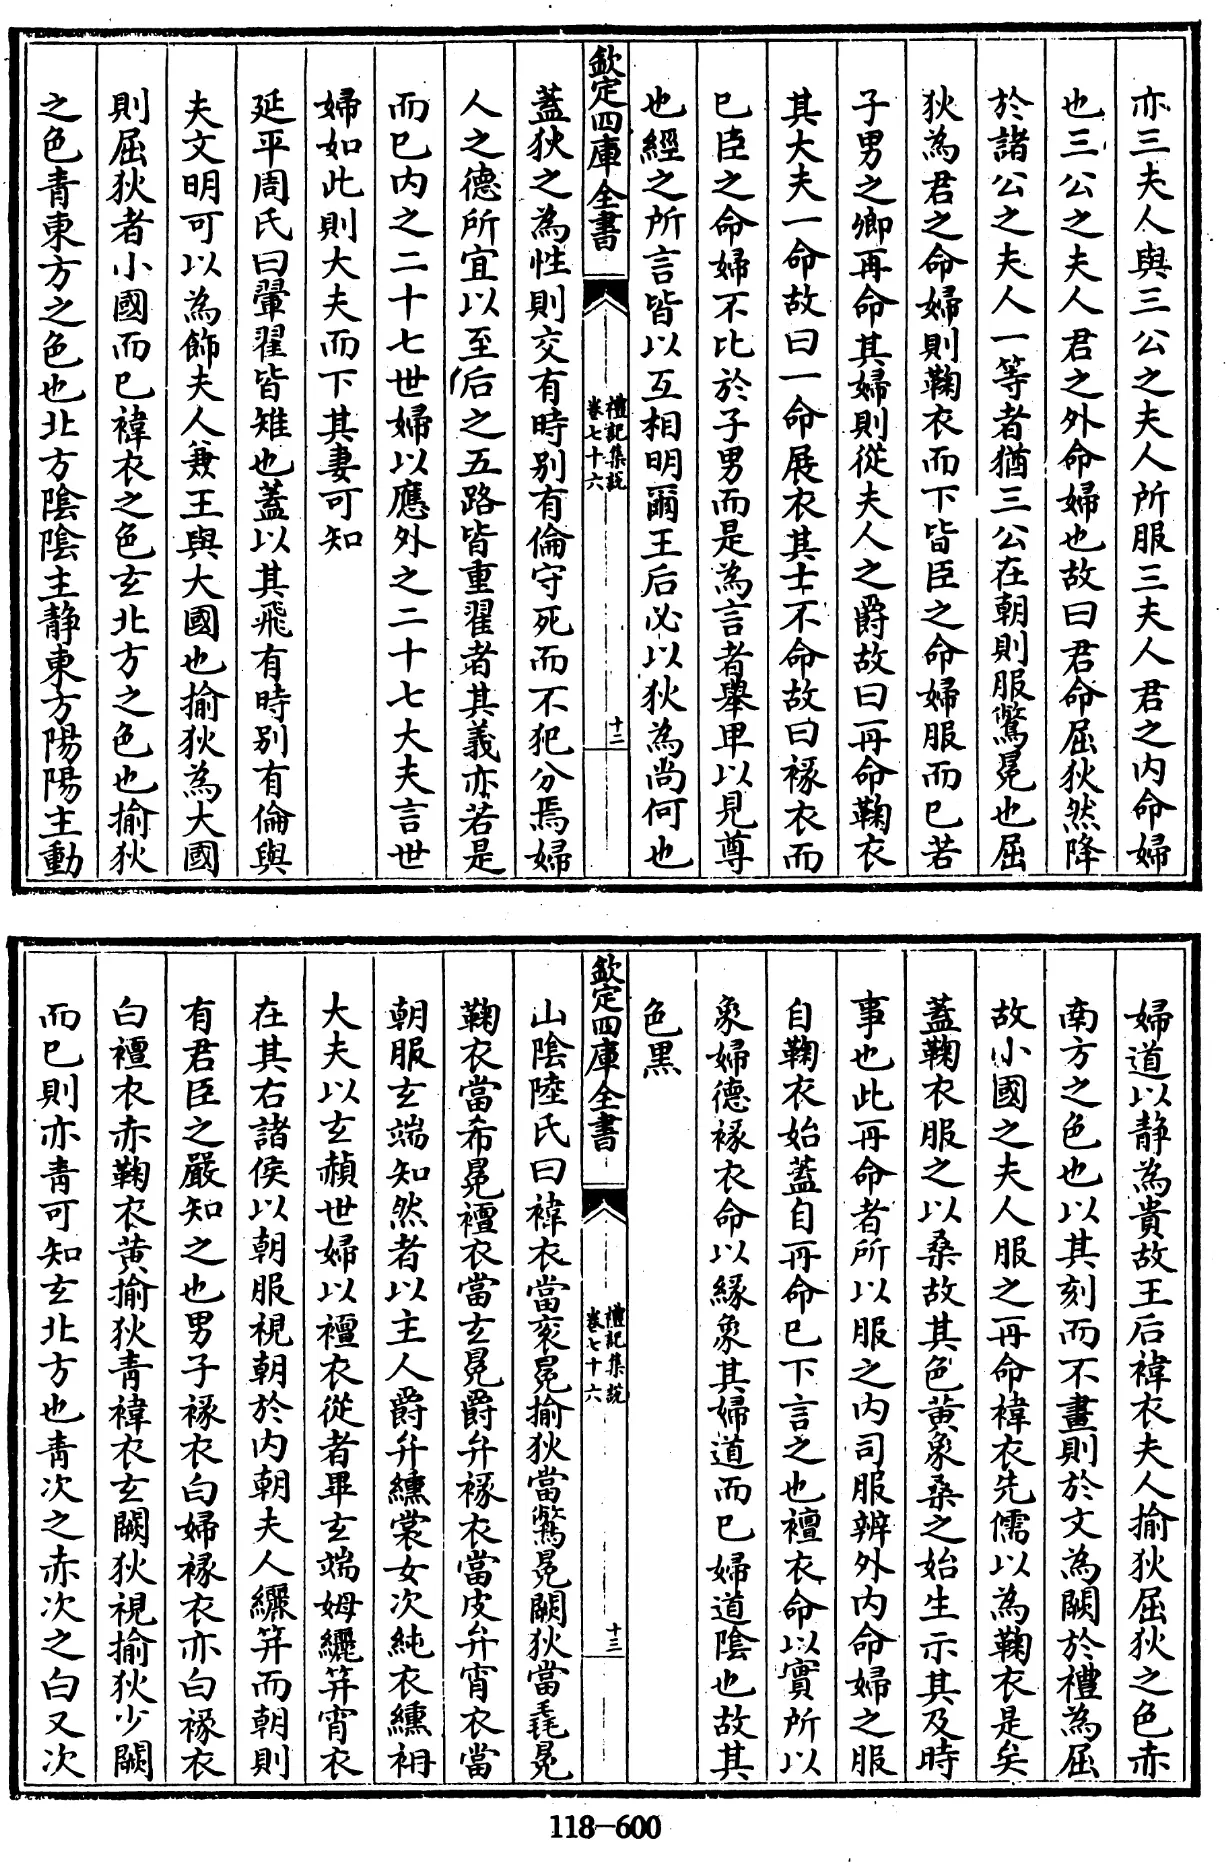 亦三夫人與三公之夫人所服三夫人君之内命婦
也三公之夫人君之外命婦也故曰君命屈狄然降
於諸公之夫人一等者猶三公在朝則服鷩冕也屈
狄為君之命婦則鞠衣而下皆臣之命婦服而已若
子男之卿再命其婦則從夫人之爵故曰再命鞠衣
其大夫一命故曰一命展衣其士不命故曰褖衣而
已臣之命婦不比於子男而是為言者舉卑以見尊
也經之所言皆以互相明爾王后必以狄為尚何也
欽定四庫全書
禮記集說
卷七十六
十二
蓋狄之為性則交有時别有倫守死而不犯分焉婦
人之德所宜以至后之五路皆重翟者其義亦若是
而已内之二十七世婦以應外之二十七大夫言世
婦如此則大夫而下其妻可知
延平周氏曰翬翟皆雉也蓋以其飛有時别有倫與
夫文明可以為飾夫人兼王與大國也揄狄為大國
則屈狄者小國而已褘衣之色玄北方之色也揄狄
之色青東方之色也北方陰陰主静東方陽陽主動
婦道以静為貴故王后褘衣夫人揄狄屈狄之色赤
南方之色也以其刻而不畫則於文為闕於禮為屈
故小國之夫人服之再命褘衣先儒以為鞠衣是矣
蓋鞠衣服之以桑故其色黄象桑之始生示其及時
事也此再命者所以服之内司服辨外内命婦之服
自鞠衣始蓋自再命已下言之也襢衣命以實所以
象婦德褖衣命以緣象其婦道而已婦道陰也故其
色黑
欽定四庫全書
禮記集說
卷七十六
十三
山陰陸氏曰褘衣當衮冕揄狄當鷩冕闕狄當毳冕
鞠衣當希冕襢衣當玄冕爵弁褖衣當皮弁宵衣當
朝服玄端知然者以主人爵弁纁裳女次純衣纁袡
大夫以玄赬世婦以襢衣從者畢玄端姆纚笄宵衣
在其右諸侯以朝服視朝於内朝夫人纚笄而朝則
有君臣之嚴知之也男子褖衣白婦褖衣亦白褖衣
白襢衣赤鞠衣黄揄狄青褘衣玄闕狄視揄狄少闕
而已則亦青可知玄北方也青次之赤次之白又次
118-600